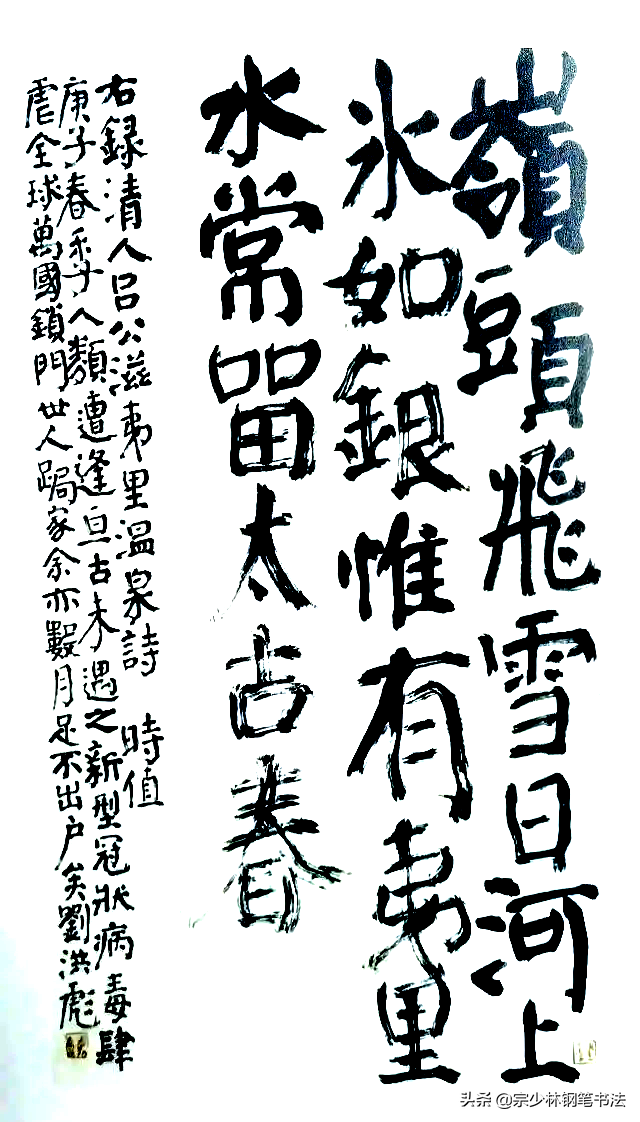 嶺頭飛雪日河上
氷如銀惟有夷里
水常留太古春
右録清人吕公滋夷里温泉詩 時值
庚子春季人類遭逢亘古未遇之新型冠狀病毒肆
虐全球萬國鎖門世人跼家余亦數月足不出户矣劉洪彪
头条 @宗少林钢笔书法